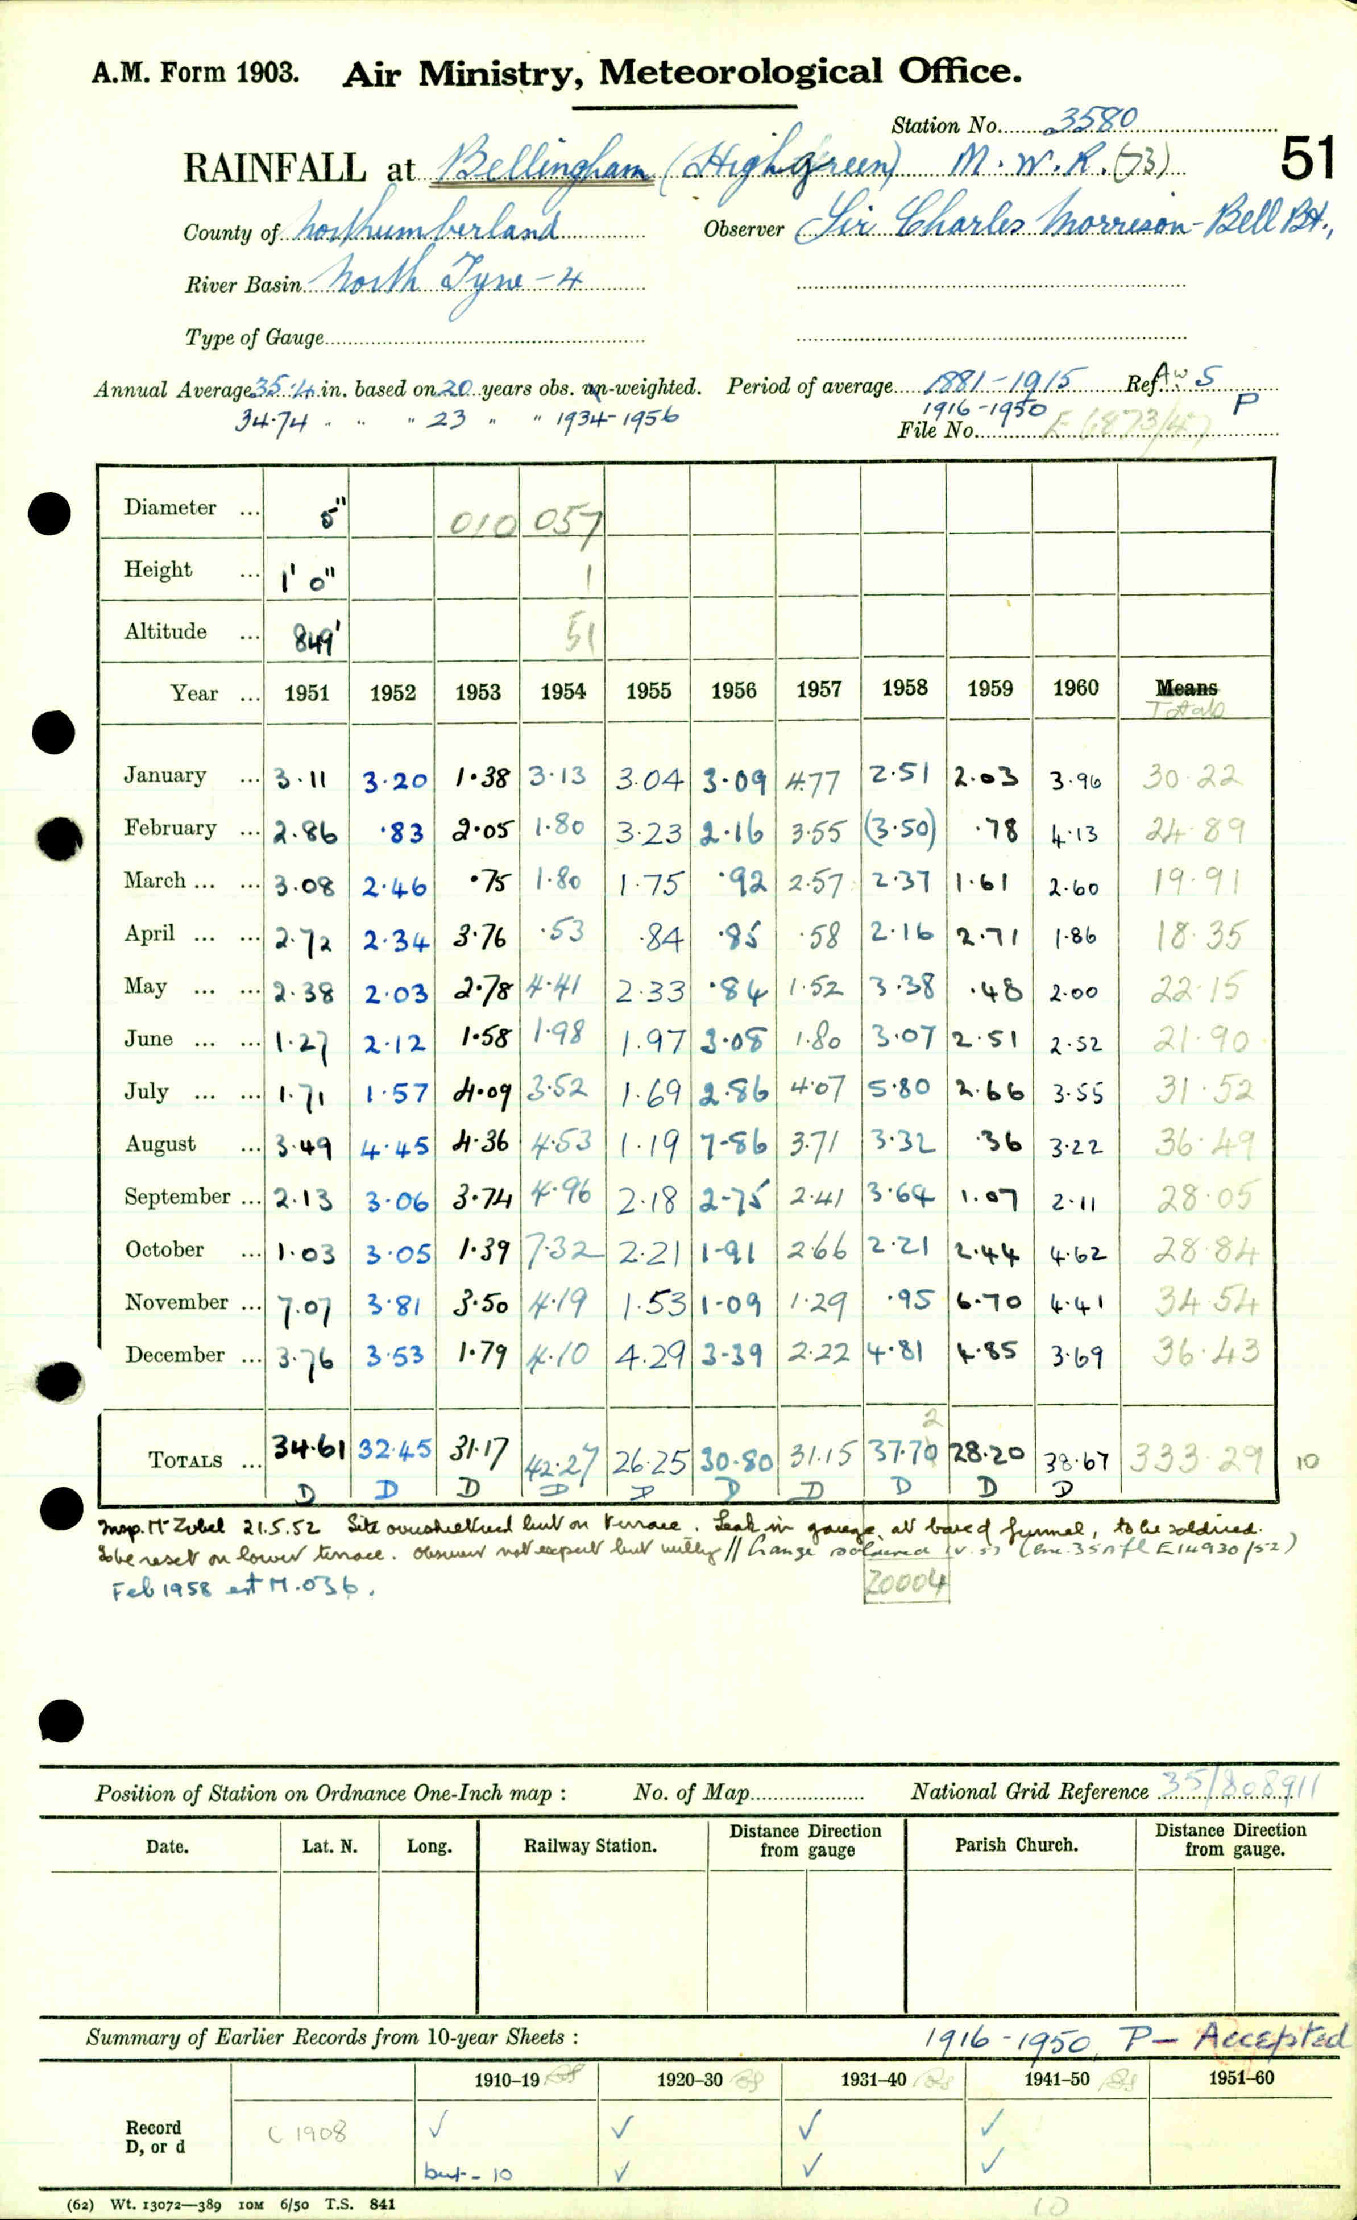 A.M. Form 1903. Air Ministry, Meteorological Office.
Station No. 3580
RAINFALL at Bellingham (Highgreen) M.W.R. (73) 51
County of Northumberland Observer Sir Charles Morrison-Bell Bt.,
River Basin North Tyne - 4
Type of Gauge
Annual Average 35.4 in. based on 20 years obs. un-weighted. Period of average 1881-1915 Ref. AW S
34.74 " " " 23 " " 1934-1956 1916-1950 P
File No. E 6873/47
Diameter ... 5" 010 057
Height ... 1' 0" 1
Altitude ... 849' 51
Year ... 1951 1952 1953 1954 1955 1956 1957 1958 1959 1960 Means
Totals
January ... 3.11 3.20 1.38 3.13 3.04 3.09 4.77 2.51 2.03 3.96 30.22
February ... 2.86 .83 2.05 1.80 3.23 2.16 3.55 (3.50) .78 4.13 24.89
March ... ... 3.08 2.46 .75 1.80 1.75 .92 2.57 2.37 1.61 2.60 19.91
April ... ... 2.72 2.34 3.76 .53 .84 .85 .58 2.16 2.71 1.86 18.35
May ... ... 2.38 2.03 2.78 4.41 2.33 .84 1.52 3.38 .48 2.00 22.15
June ... ... 1.27 2.12 1.58 1.98 1.97 3.08 1.80 3.07 2.51 2.52 21.90
July ... ... 1.71 1.57 4.09 3.52 1.69 2.86 4.07 5.80 2.66 3.55 31.52
August ... 3.49 4.45 4.36 4.53 1.19 7.86 3.71 3.32 .36 3.22 36.49
September ... 2.13 3.06 3.74 4.96 2.18 2.75 2.41 3.64 1.07 2.11 28.05
October ... 1.03 3.05 1.39 7.32 2.21 1.91 2.66 2.21 2.44 4.62 28.84
November ... 7.07 3.81 3.50 4.19 1.53 1.09 1.29 .95 6.70 4.41 34.54
December ... 3.76 3.53 1.79 4.10 4.29 3.39 2.22 4.81 4.85 3.69 36.43
2
TOTALS ... 34.61 32.45 31.17 42.27 26.25 30.80 31.15 37.70 28.20 38.67 333.29 10
D D D D D D D D D D
Insp. Mr Zobel 21.5.52 Site oversheltered but on terrace. Leak in gauge, at base of funnel, to be soldered.
To be reset on lower terrace. Observer not expert but willing //
Feb 1958 est M.036.
Z0004
Position of Station on Ordnance One-Inch map : No. of Map National Grid Reference 35/808911
Date. Lat. N. Long. Railway Station. Distance Direction from gauge Parish Church. Distance Direction from gauge.
Summary of Earlier Records from 10-year Sheets : 1916-1950 P - Accepted
1910–19 1920–30 1931–40 1941–50 1951–60
Record C 1908 ✓ ✓ ✓ ✓
D, or d but - 10 ✓ ✓ ✓
(62) Wt. 13072—389 10M 6/50 T.S. 841 10